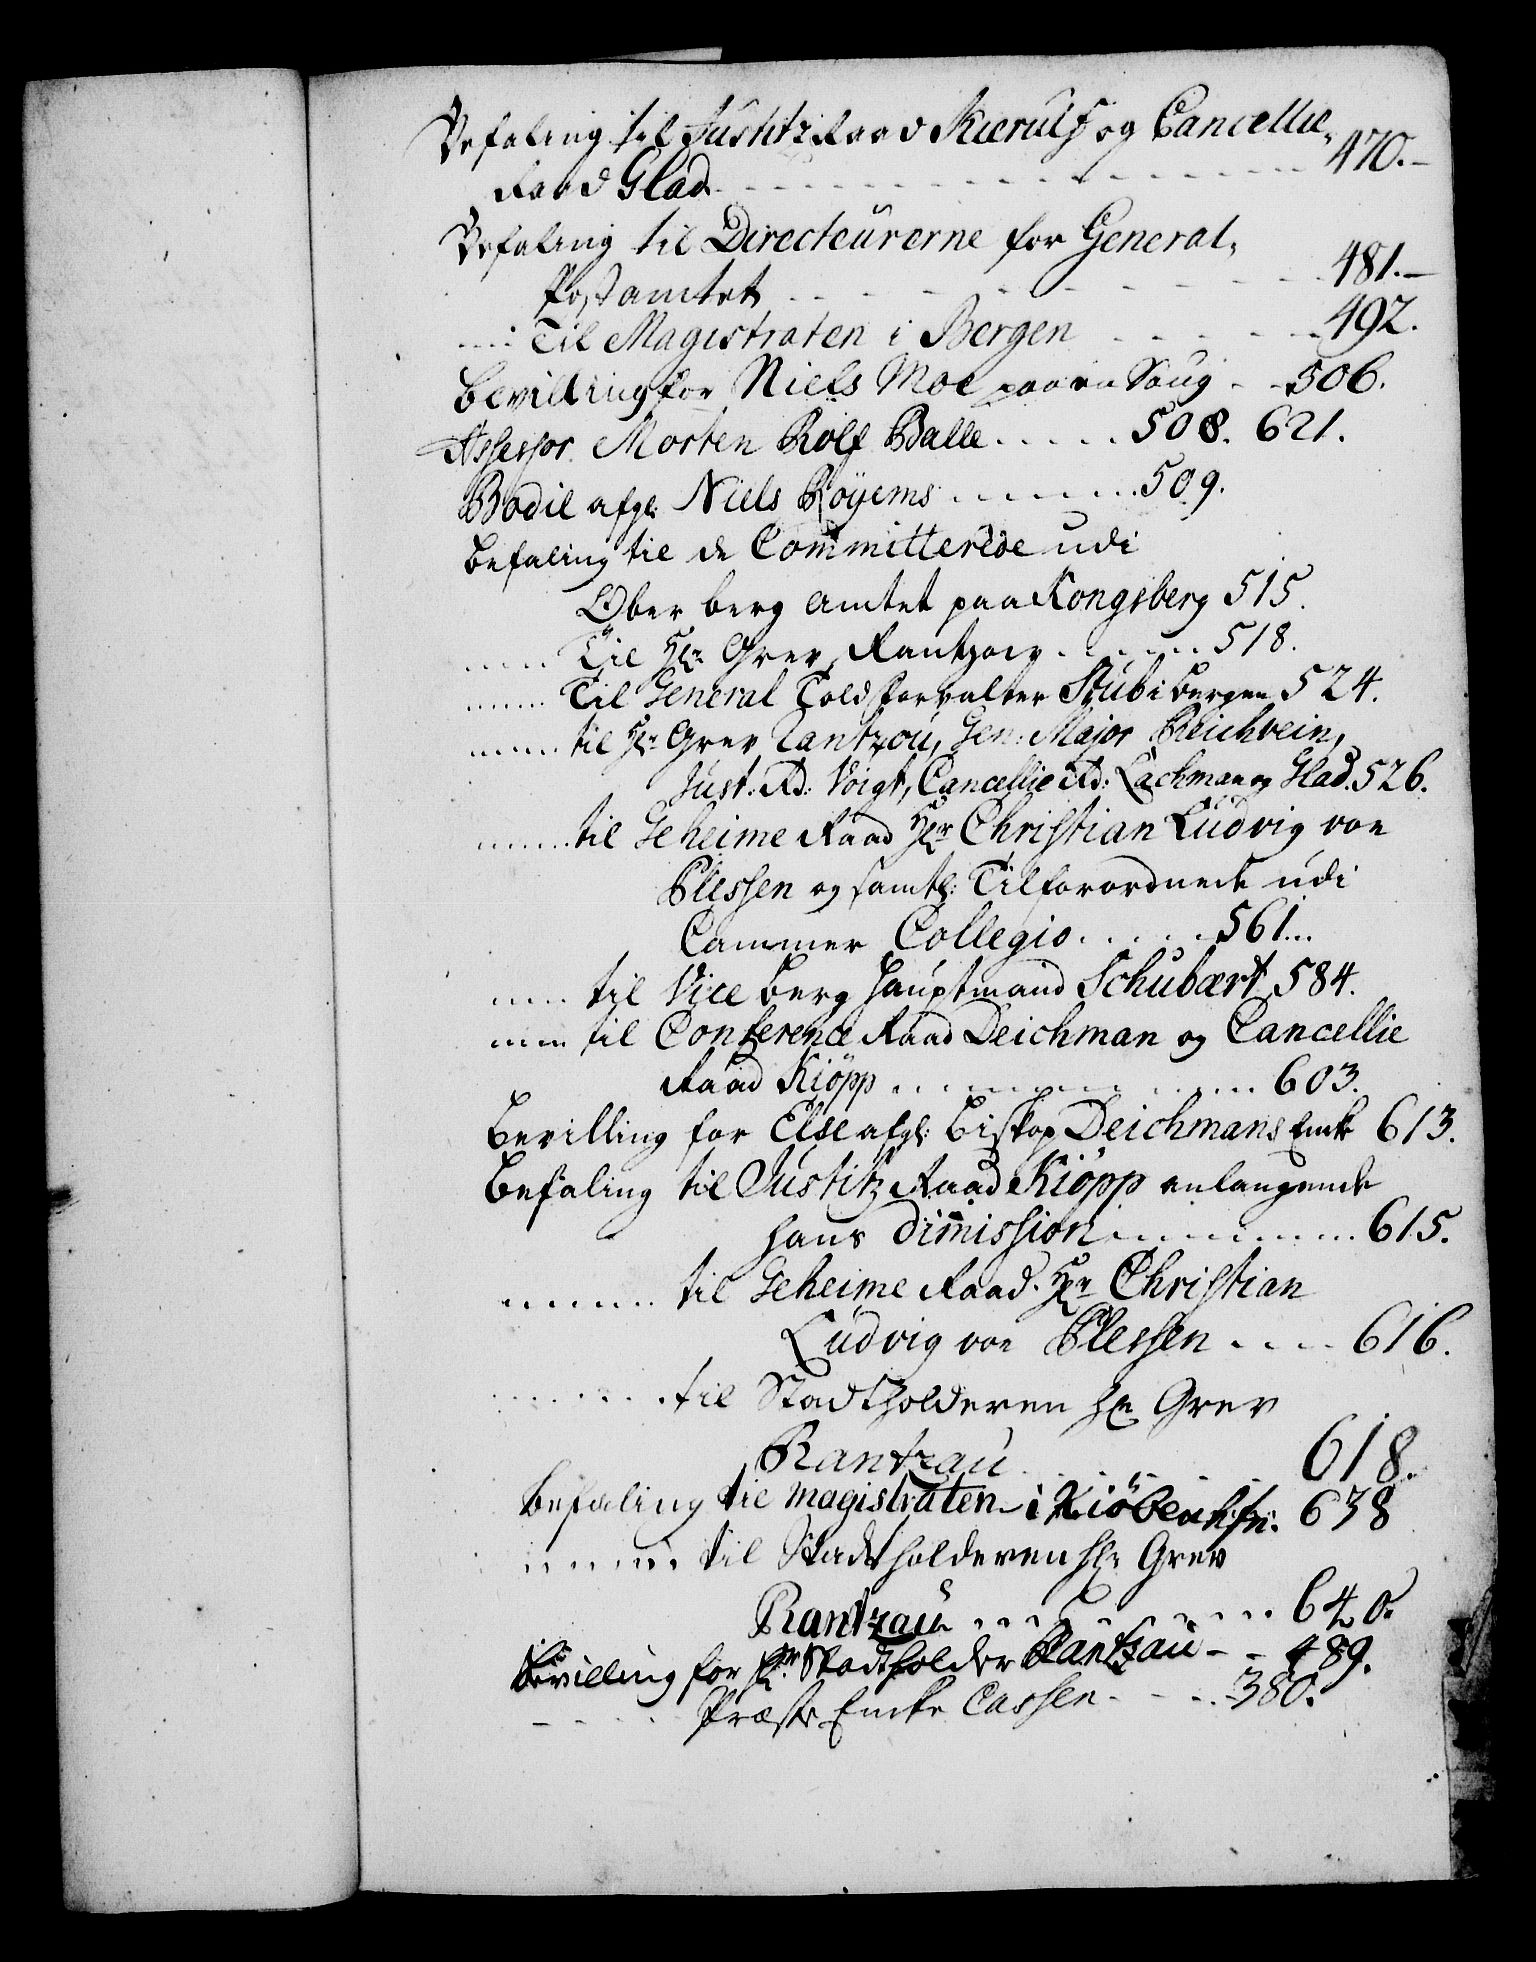 Befaling til Justitz Raad Kierulf og Cancellie-
Raad Glad - - - 470.-
Befaling til Directeurerne for General-
Post amtet - - - 481.-
..... Til Magistraten i Bergen - - - 492.
Bevilling for Niels Moe paa en Saug - - 506.
Assessor Morten Rolf Balle . . . . . 508. 621.
Bodil afgl: Niels Röyems . . . . . . 509.
Befaling til de Committerede udi
Ober berg Amtet paa Kongsberg 515.
..... Til Hr: Grev Rantzow . . . . . 518.
...... Til General Toldforvalter Stub i Bergen 524.
...... til Hr: Grev Rantzou, Gen: Major Reichvein,
Just: Rd: Voigt, Cancellie Rd: Lachman og Glad. 526.
...... til Geheime Raad Hr Christian Ludvig von
Plessen og samtl: Tilforordnede udi
Cammer Collegio . . . . . 561...
..... til Vice Berg Hauptmand Schubært 584.
..... til Conference Raad Deichman og Cancellie
Raad Kiöpp . . . . . . . . 603.
Bevilling for Else afgl: Biskop Deichmans Encke 613.
Befaling til Justitz Raad Kiöpp anlangende
hans Dimission . . . . . . . 615.
....... til Geheime Raad Hr Christian
Ludvig von Plessen . . . . 616.
....... til Stadtholderen Hr Grev
Rantzau . . . . . 618.
Befaling til Magistraten i Kiöbenhfn: 638
....... til Stadtholderen Hr Grev
Rantzau . . . . . . . 640.
Bevilling for Hr Stadtholder Rantzau - - 489.
- - - - Præste Encke Cassen - - - - 380.